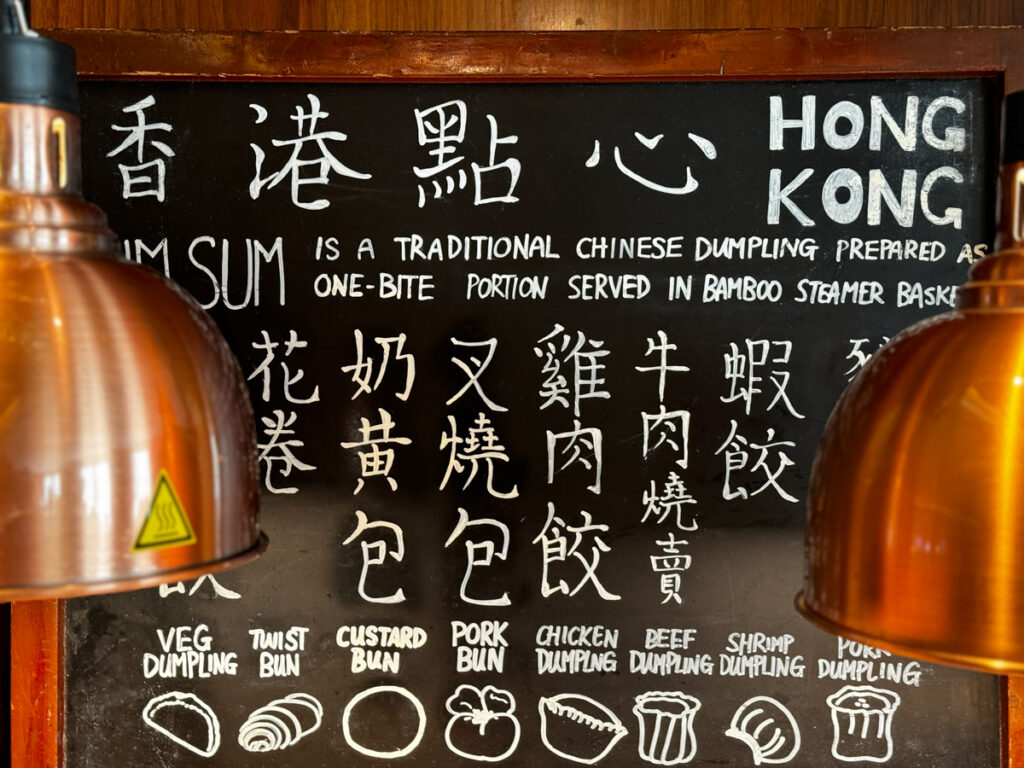 香港點心
HONG
KONG
SUM
IS A TRADITIONAL CHINESE DUMPLING PREPARED AS
ONE-BITE PORTION SERVED IN BAMBOO STEAMER
花卷
奶黃包
叉燒包
雞肉餃
牛肉燒賣
蝦餃
VEG
DUMPLING
TWIST
BUN
CUSTARD
BUN
PORK
BUN
CHICKEN
DUMPLNG
BEEF
DUMPLING
SHRIMP
DUMPLING
PORK
DUMPLING